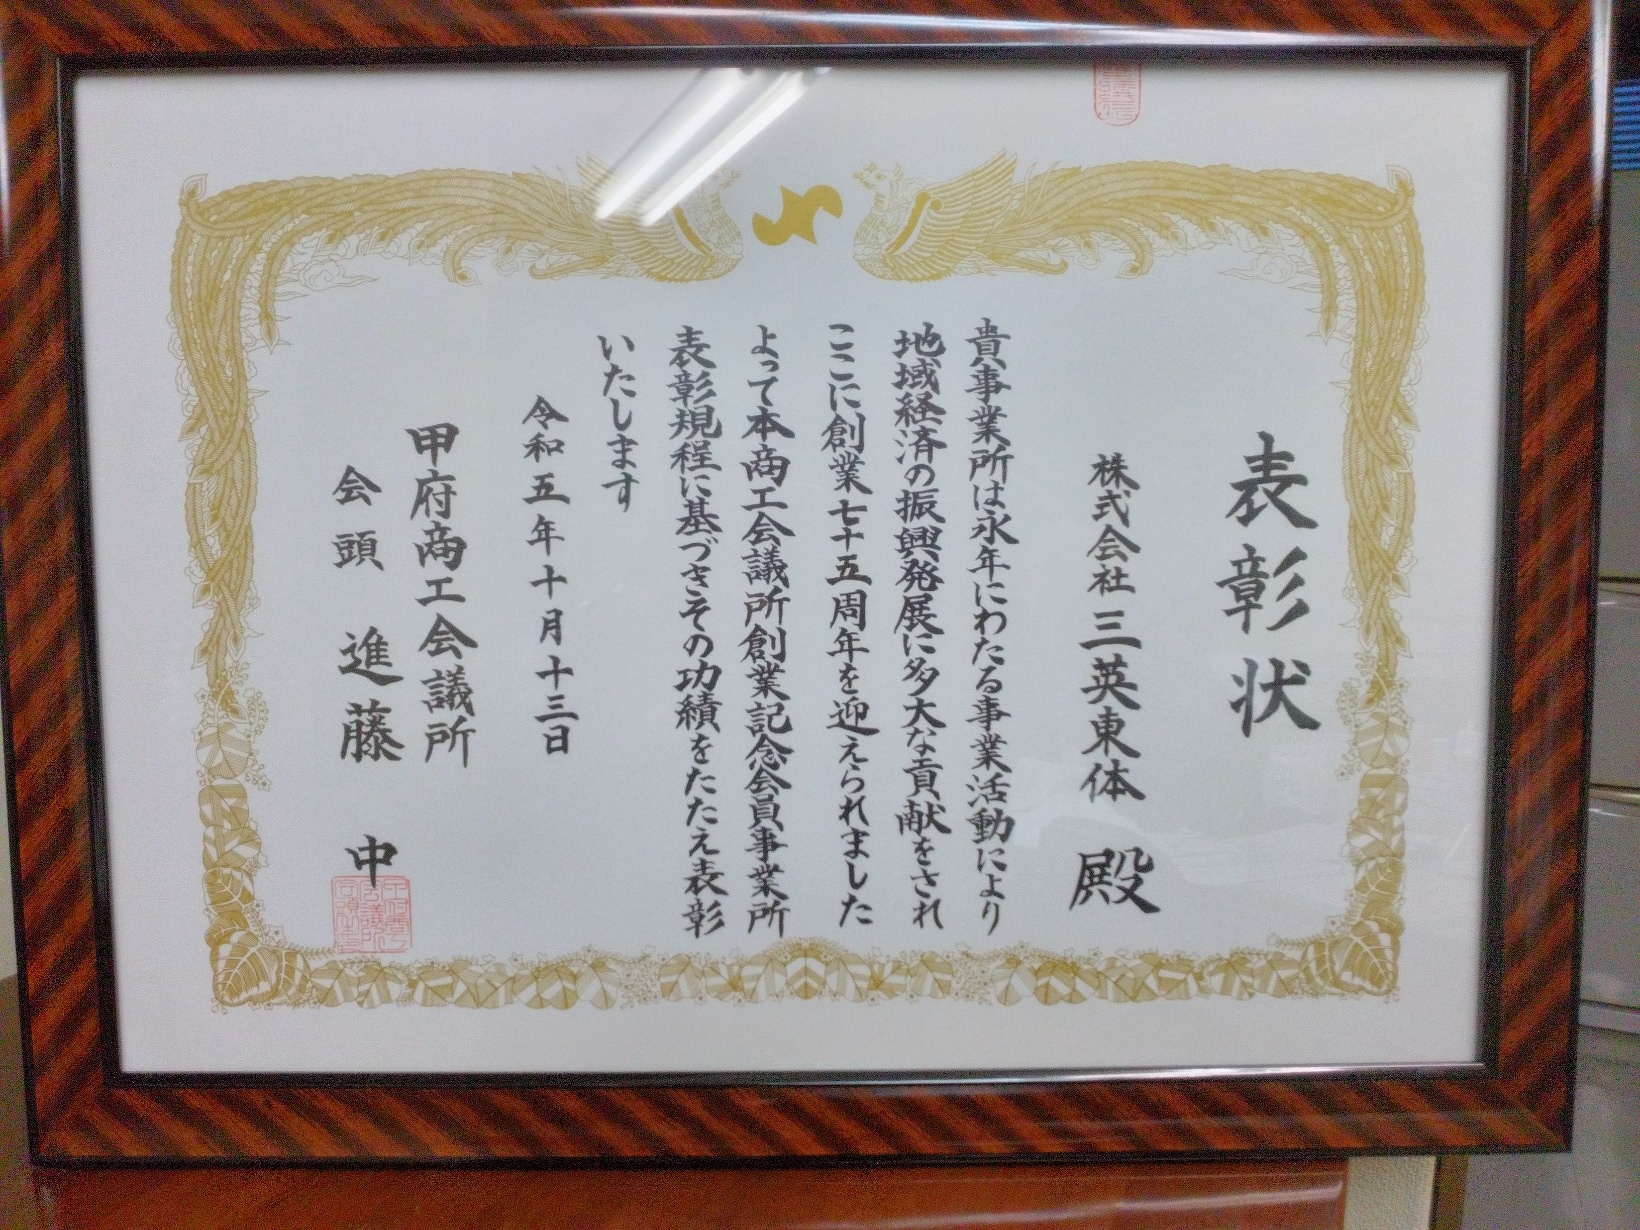 表彰状
株式会社 三英東体 殿
貴事業所は永年にわたる事業活動により
地域経済の振興発展に多大な貢献をされ
ここに創業七十五周年を迎えられました
よって本商工会議所創業記念会員事業所
表彰規程に基づきその功績をたたえ表彰
いたします
令和五年十月十三日
甲府商工会議所
会頭 進藤 中